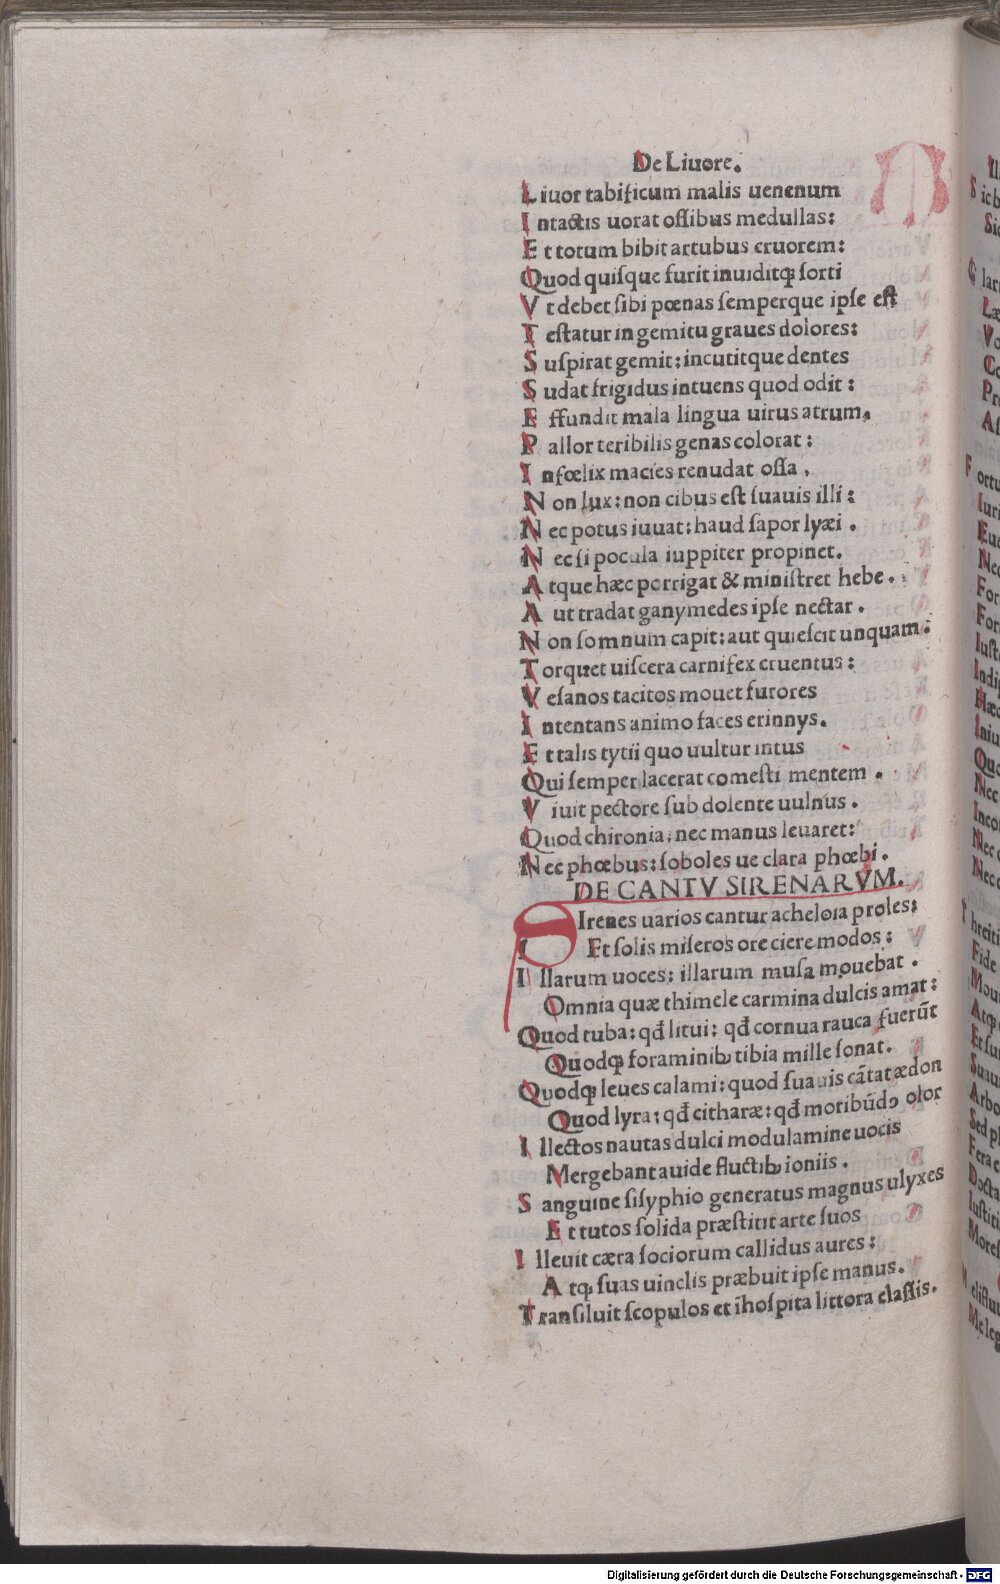 De Liuore.
Liuor tabificum malis uenenum
Intactis uorat oſſibus medullas:
Et totum bibit artubus cruorem:
Quod quiſque furit inuiditqꝫ ſorti
Vt debet ſibi pœnas ſemperque ipſe eſt
Teſtatur in gemitu graues dolores:
Suſpirat gemit: incutitque dentes
Sudat frigidus intuens quod odit:
Effundit mala lingua uirus atrum.
Pallor teribilis genas colorat:
Infœlix macies renudat oſſa.
Non lux: non cibus eſt ſuauis illi:
Nec potus iuuat: haud ſapor lyæi.
Nec ſi pocula iuppiter propinet.
Atque hæc porrigat & miniſtret hebe.
Aut tradat ganymedes ipſe nectar.
Non ſomnum capit: aut quieſcit unquam:
Torquet uiſcera carnifex cruentus:
Veſanos tacitos mouet furores
Intentans animo faces erinnys.
Et talis tytii quo uultur intus
Qui ſemper lacerat comeſti mentem.
Viuit pectore ſub dolente uulnus.
Quod chironia: nec manus leuaret:
Nec phœbus: ſoboles ue clara phœbi.
DE CANTV SIRENARVM.
SIrenes uarios cantur acheloia proles:
Et ſolis miſeros ore ciere modos:
Illarum uoces: illarum muſa mouebat.
Omnia quæ thimele carmina dulcis amat:
Quod tuba: qđ litui: qđ cornua rauca fuerūt
Quodqꝫ foraminibꝫ tibia mille ſonat.
Quodqꝫ leues calami: quod ſuauis cātat ædon
Quod lyra: qđ citharæ: qđ moribūdꝰ olor
Illectos nautas dulci modulamine uocis
Mergebant auide fluctibꝫ ioniis.
Sanguine ſiſyphio generatus magnus ulyxes
Et tutos ſolida præſtitit arte ſuos
Illeuit cæra ſociorum callidus aures:
Atqꝫ ſuas uinclis præbuit ipſe manus.
Tranſiluit ſcopulos et īhoſpita littora claſſis.
Digitalisierung gefördert durch die Deutsche Forschungsgemeinschaft - DFG